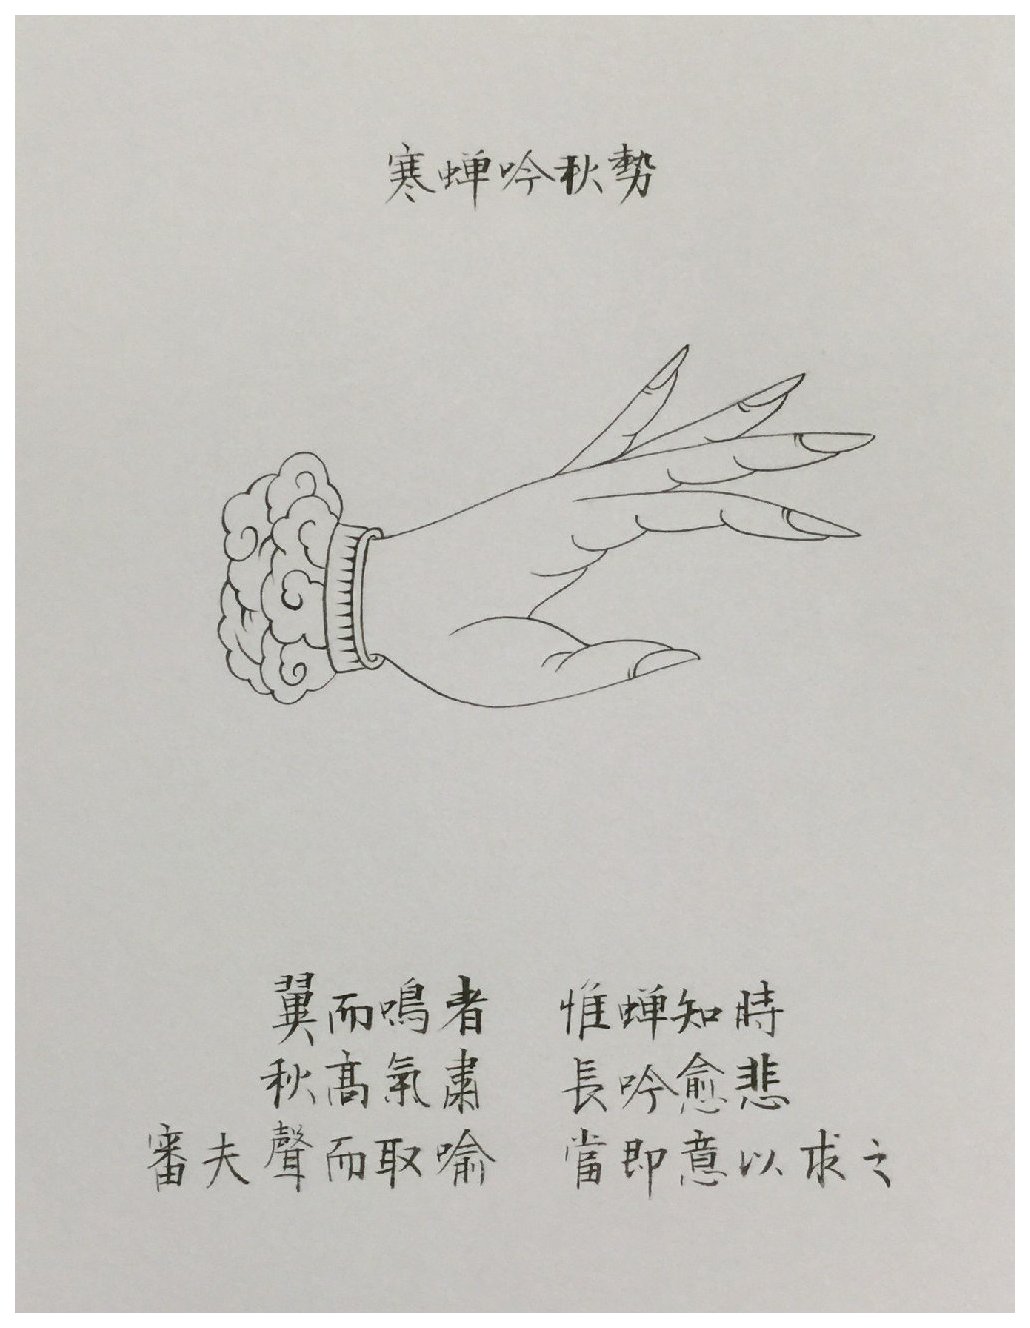 寒蟬吟秋勢
翼而鳴者　惟蟬知時
秋高氣肅　長吟愈悲
審夫聲而取喻　當即意以求之